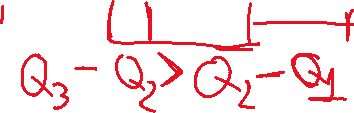 Q₃ - Q₂ > Q₂ - Q₁